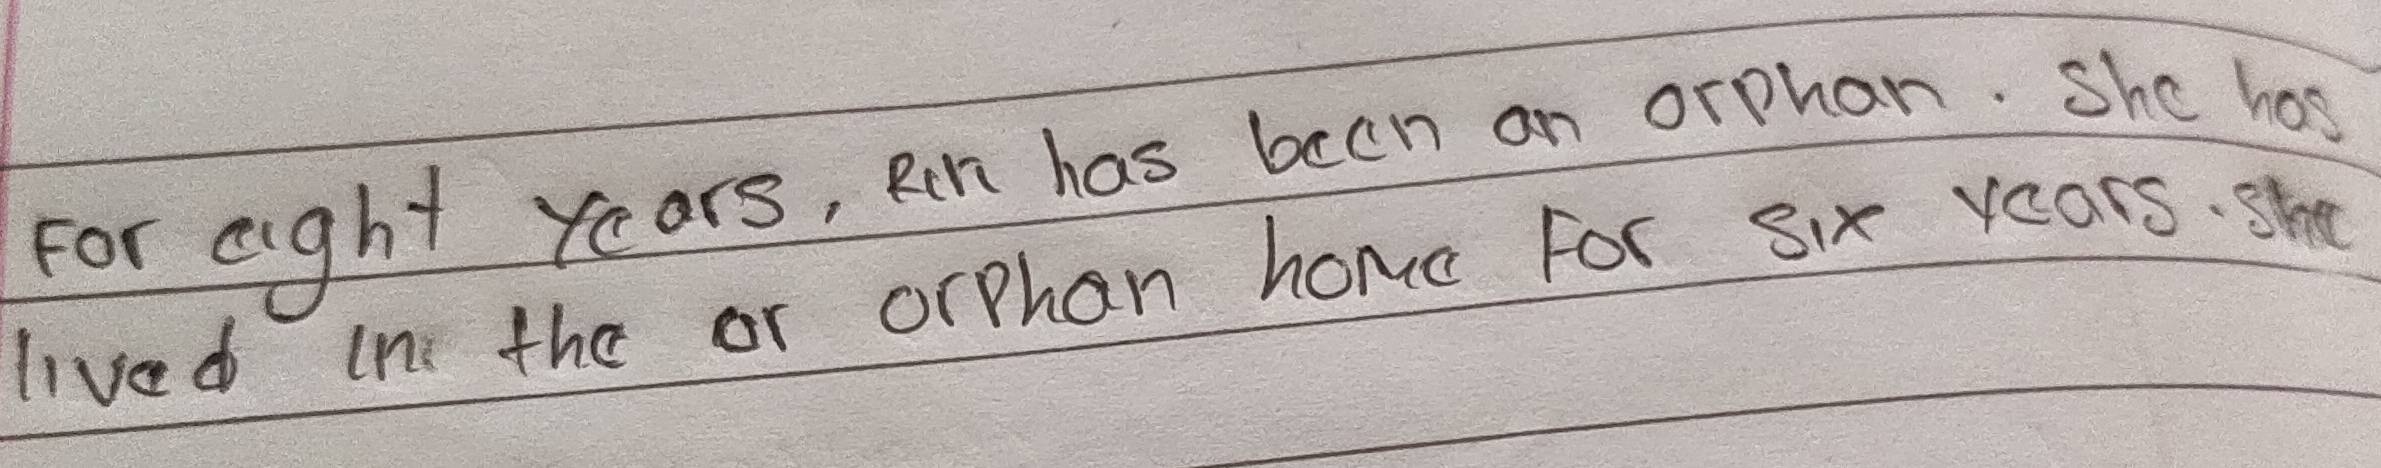 For eight years, Ren has been an orphan. She has
lived in the or orphan home For six years. She